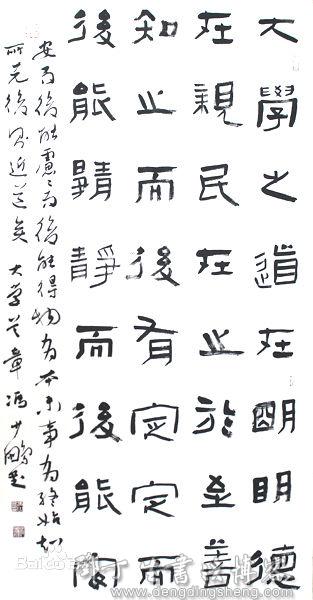 大學之道在明明德
在親民在止於至善
知止而後有定定而
後能靜靜而後能安
安而後能慮〻而後能得物有本末事有終始知
所先後則近道矣 大学章 馮少
鄧丁生書法博客
www.dengdingsheng.com